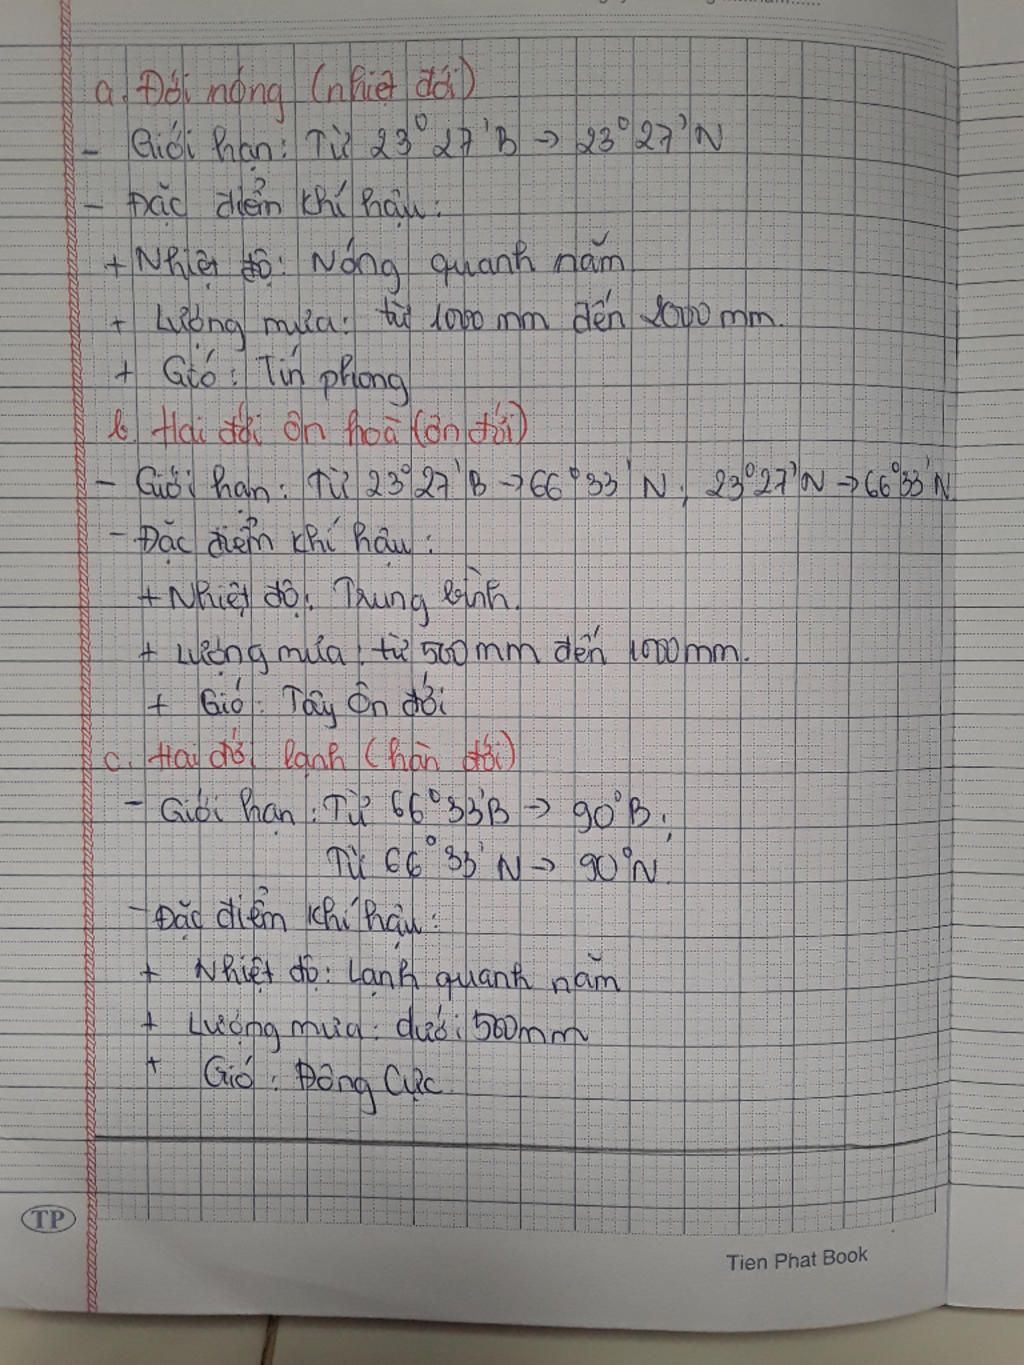 a. Đới nóng (nhiệt đới)
- Giới hạn: Từ 23°27'B → 23°27'N
- Đặc điểm khí hậu:
+ Nhiệt độ: Nóng quanh năm
+ Lượng mưa: từ 1000 mm đến 2000 mm.
+ Gió: Tín phong
b. Hai đới ôn hoà (ôn đới)
- Giới hạn: Từ 23°27'B → 66°33'N; 23°27'N → 66°33'N
- Đặc điểm khí hậu:
+ Nhiệt độ: Trung bình.
+ Lượng mưa: từ 500mm đến 1000mm.
+ Gió: Tây Ôn đới
c. Hai đới lạnh (hàn đới)
- Giới hạn: Từ 66°33'B → 90°B;
Từ 66°33'N → 90°N
- Đặc điểm khí hậu:
+ Nhiệt độ: Lạnh quanh năm
+ Lượng mưa: dưới 500mm
+ Gió: Đông Cực
TP
Tien Phat Book